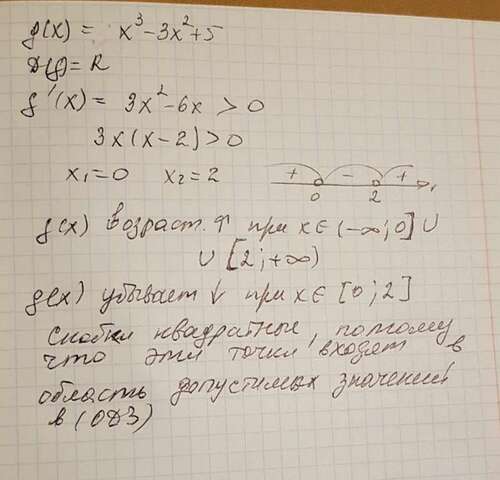 f(x) = x³-3x²+5
D(f)=R
f'(x) = 3x²-6x > 0
3x(x-2)>0
x₁=0 x₂=2
+ - +
0 2
f(x) возраст. ↑ при x∈(-∞;0]∪
∪ [2;+∞)
f(x) убывает ↓ при x∈ [0;2]
Скобки квадратные, потому
что эти точки входят в
область допустимых значений
в (ОДЗ)